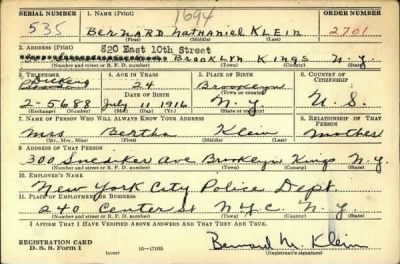 1694
SERIAL NUMBER 1. NAME (Print) ORDER NUMBER
535 BERNARD NATHANIEL KLEIN 2701
(First) (Middle) (Last)
520 East 10th Street
2. ADDRESS (Print)
BROOKLYN KINGS N.Y.
(Number and street or R. F. D. number) (Town) (County) (State)
3. TELEPHONE 4. AGE IN YEARS 5. PLACE OF BIRTH 6. COUNTRY OF CITIZENSHIP
Dickens 24 Brooklyn
DATE OF BIRTH (Town or county)
2-5688 July 11 1916 N.Y. U.S.
(Exchange) (Number) (Mo.) (Day) (Yr.) (State or country)
7. NAME OF PERSON WHO WILL ALWAYS KNOW YOUR ADDRESS 8. RELATIONSHIP OF THAT PERSON
Mrs Bertha Klein Mother
(Mr., Mrs., Miss) (First) (Middle) (Last)
9. ADDRESS OF THAT PERSON
300 Snediker Ave Brooklyn Kings N.Y.
(Number and street or R. F. D. number) (Town) (County) (State)
10. EMPLOYER'S NAME
New York City Police Dept.
11. PLACE OF EMPLOYMENT OR BUSINESS
240 Center St N.Y.C. N.Y.
(Number and street or R. F. D. number) (Town) (County) (State)
I AFFIRM THAT I HAVE VERIFIED ABOVE ANSWERS AND THAT THEY ARE TRUE.
REGISTRATION CARD
D. S. S. Form 1 (over) 16—17105 Bernard N. Klein
(Registrant's signature)